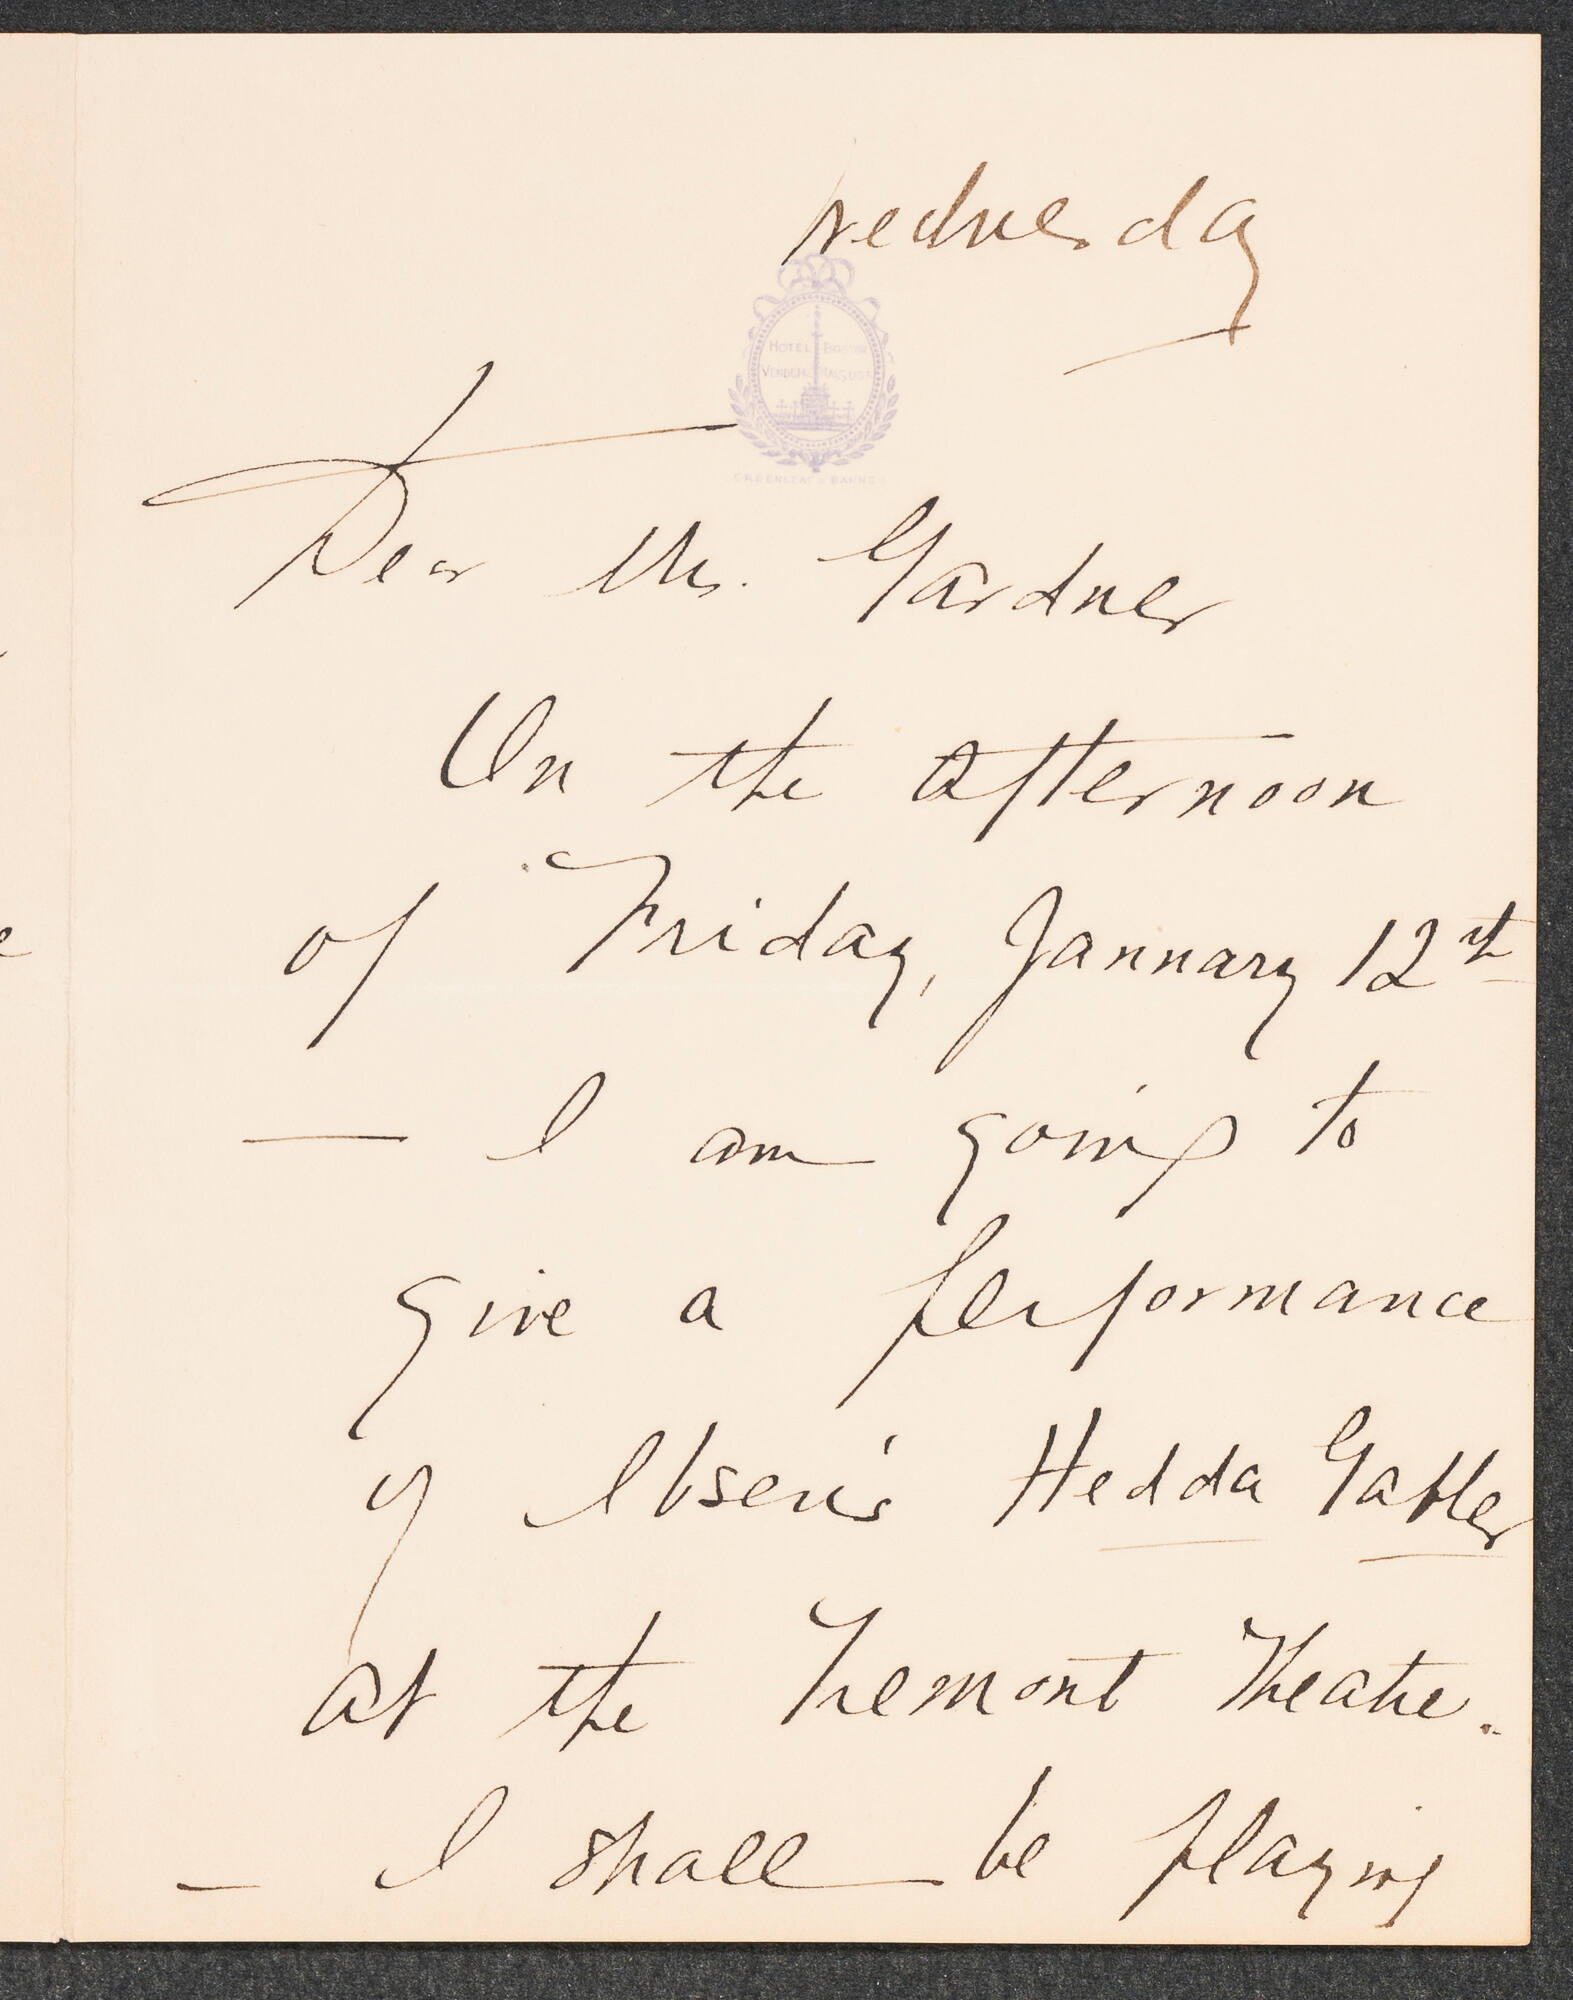 Wednesday
HOTEL BOSTON
VENDOME MASS USA
GREENLEAF & BARNES
Dear Mrs. Gardner
On the afternoon
of Friday, January 12th
— I am going to
give a performance
of Ibsen's Hedda Gabler
at the Tremont Theatre.
— I shall be playing